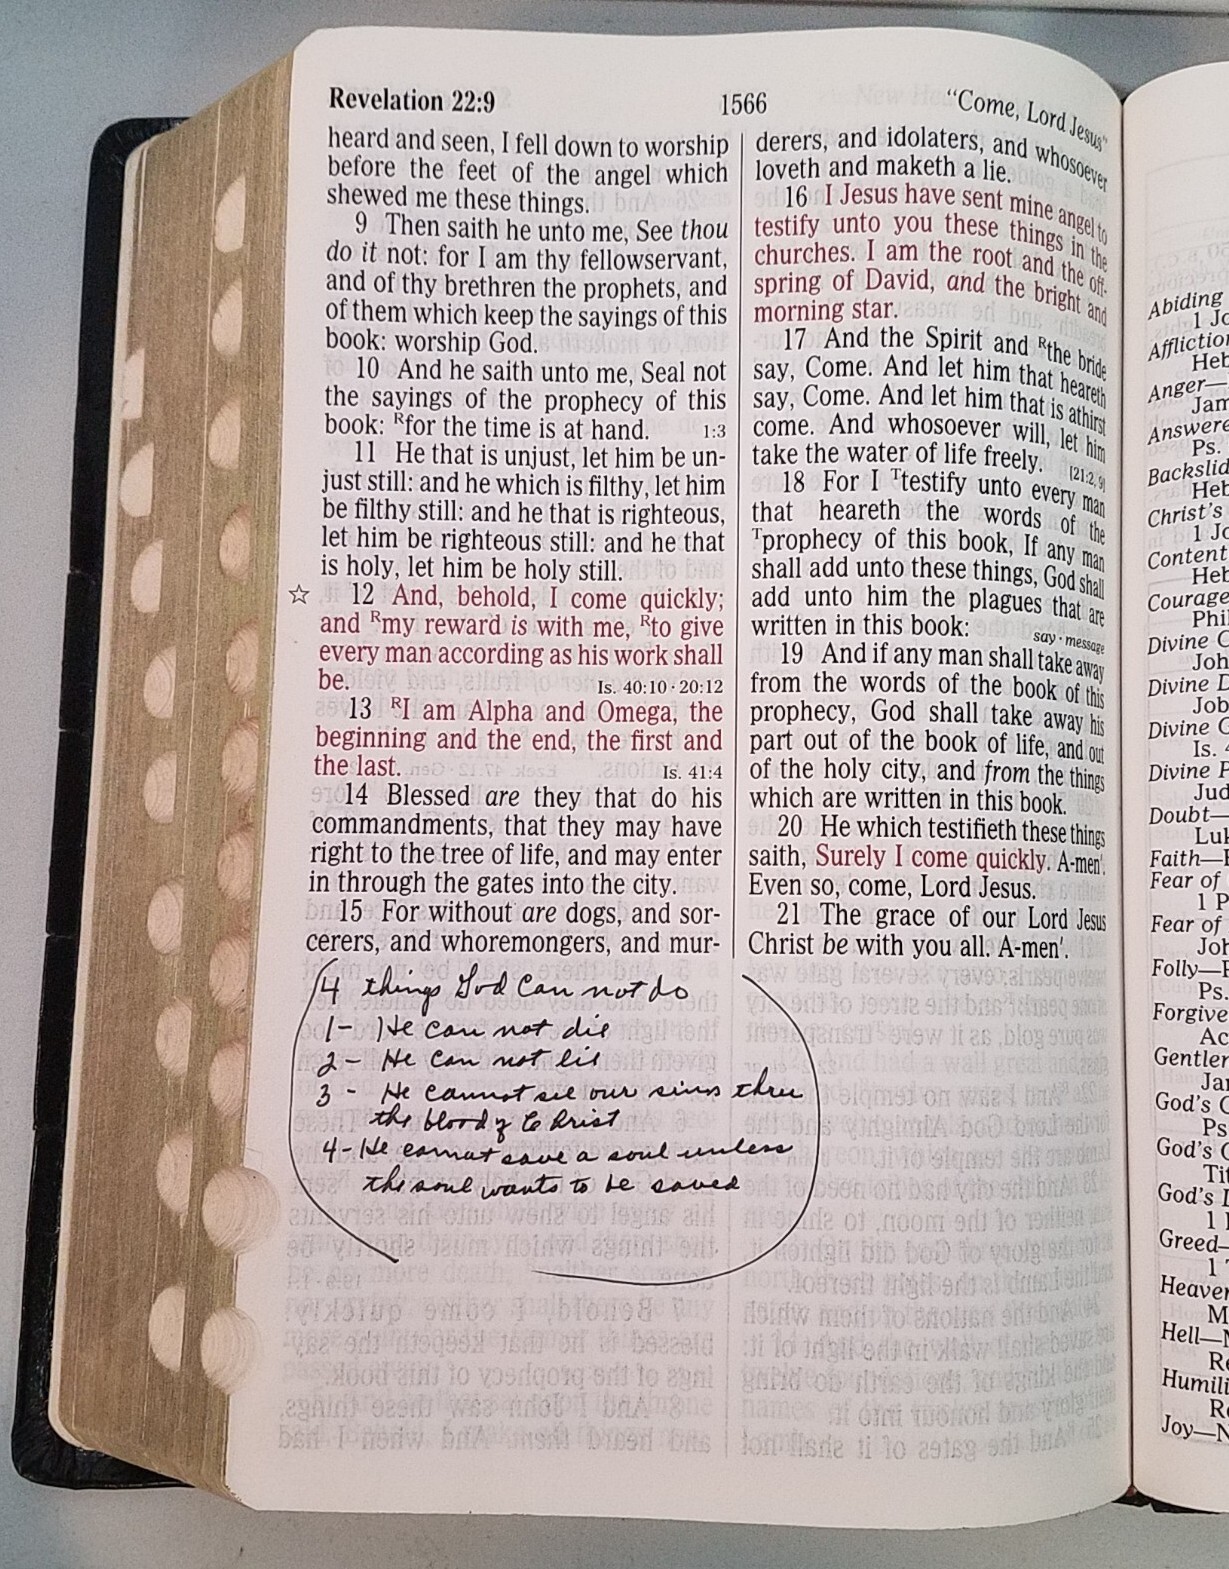 Revelation 22:9
1566
"Come, Lord Jesus"
heard and seen, I fell down to worship
before the feet of the angel which
shewed me these things.
9 Then saith he unto me, See thou
do it not: for I am thy fellowservant,
and of thy brethren the prophets, and
of them which keep the sayings of this
book: worship God.
10 And he saith unto me, Seal not
the sayings of the prophecy of this
book: Rfor the time is at hand. 1:3
11 He that is unjust, let him be un-
just still: and he which is filthy, let him
be filthy still: and he that is righteous,
let him be righteous still: and he that
is holy, let him be holy still.
☆ 12 And, behold, I come quickly;
and Rmy reward is with me, Rto give
every man according as his work shall
be. Is. 40:10 · 20:12
13 RI am Alpha and Omega, the
beginning and the end, the first and
the last. Is. 41:4
14 Blessed are they that do his
commandments, that they may have
right to the tree of life, and may enter
in through the gates into the city.
15 For without are dogs, and sor-
cerers, and whoremongers, and mur-
derers, and idolaters, and whosoever
loveth and maketh a lie.
16 I Jesus have sent mine angel to
testify unto you these things in the
churches. I am the root and the off-
spring of David, and the bright and
morning star.
17 And the Spirit and Rthe bride
say, Come. And let him that heareth
say, Come. And let him that is athirst
come. And whosoever will, let him
take the water of life freely. [21:2, 9]
18 For I Ttestify unto every man
that heareth the words of the
Tprophecy of this book, If any man
shall add unto these things, God shall
add unto him the plagues that are
written in this book: say · message
19 And if any man shall take away
from the words of the book of this
prophecy, God shall take away his
part out of the book of life, and out
of the holy city, and from the things
which are written in this book.
20 He which testifieth these things
saith, Surely I come quickly. A-men'.
Even so, come, Lord Jesus.
21 The grace of our Lord Jesus
Christ be with you all. A-men'.
4 things God Can not do
1- He can not die
2- He can not lie
3- He cannot see our sins thru
the blood of Christ
4- He cannot save a soul unless
the soul wants to be saved
Abiding
1 Jo
Affliction
Heb
Anger—
Jam
Answere
Ps.
Backslid
Heb
Christ's
1 Jo
Content
Heb
Courage
Phil
Divine C
Joh
Divine D
Job
Divine G
Is. 4
Divine P
Jud
Doubt—
Luk
Faith—
Fear of
1 P
Fear of
Joh
Folly—
Ps.
Forgive
Ac
Gentler
Jan
God's C
Ps
God's G
Tit
God's L
1
Greed—
1
Heaven
M
Hell—
Re
Humili
Re
Joy—